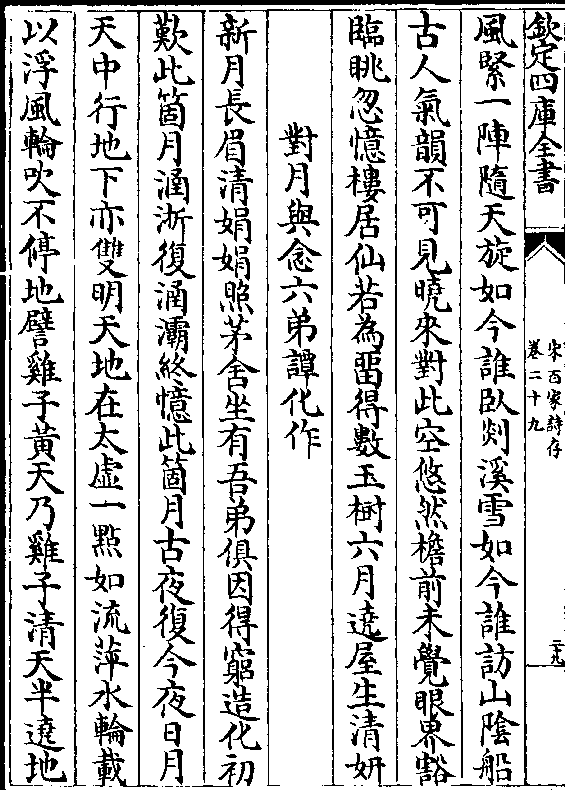 欽定四庫全書
宋百家詩存
卷二十九
二十九
風緊一陣隨天旋如今誰臥剡溪雪如今誰訪山陰船
古人氣韻不可見曉來對此空悠然檐前未覺眼界豁
臨眺忽憶樓居仙若為畱得數玉樹六月遶屋生清妍
對月與念六弟譚化作
新月長眉清娟娟照茅舍坐有吾弟俱因得窮造化初
歎此箇月涵淅復涵灞終憶此箇月古夜復今夜日月
天中行地下亦雙明天地在太虛一點如流萍水輪載
以浮風輪吹不停地譬雞子黃天乃雞子清天半遶地